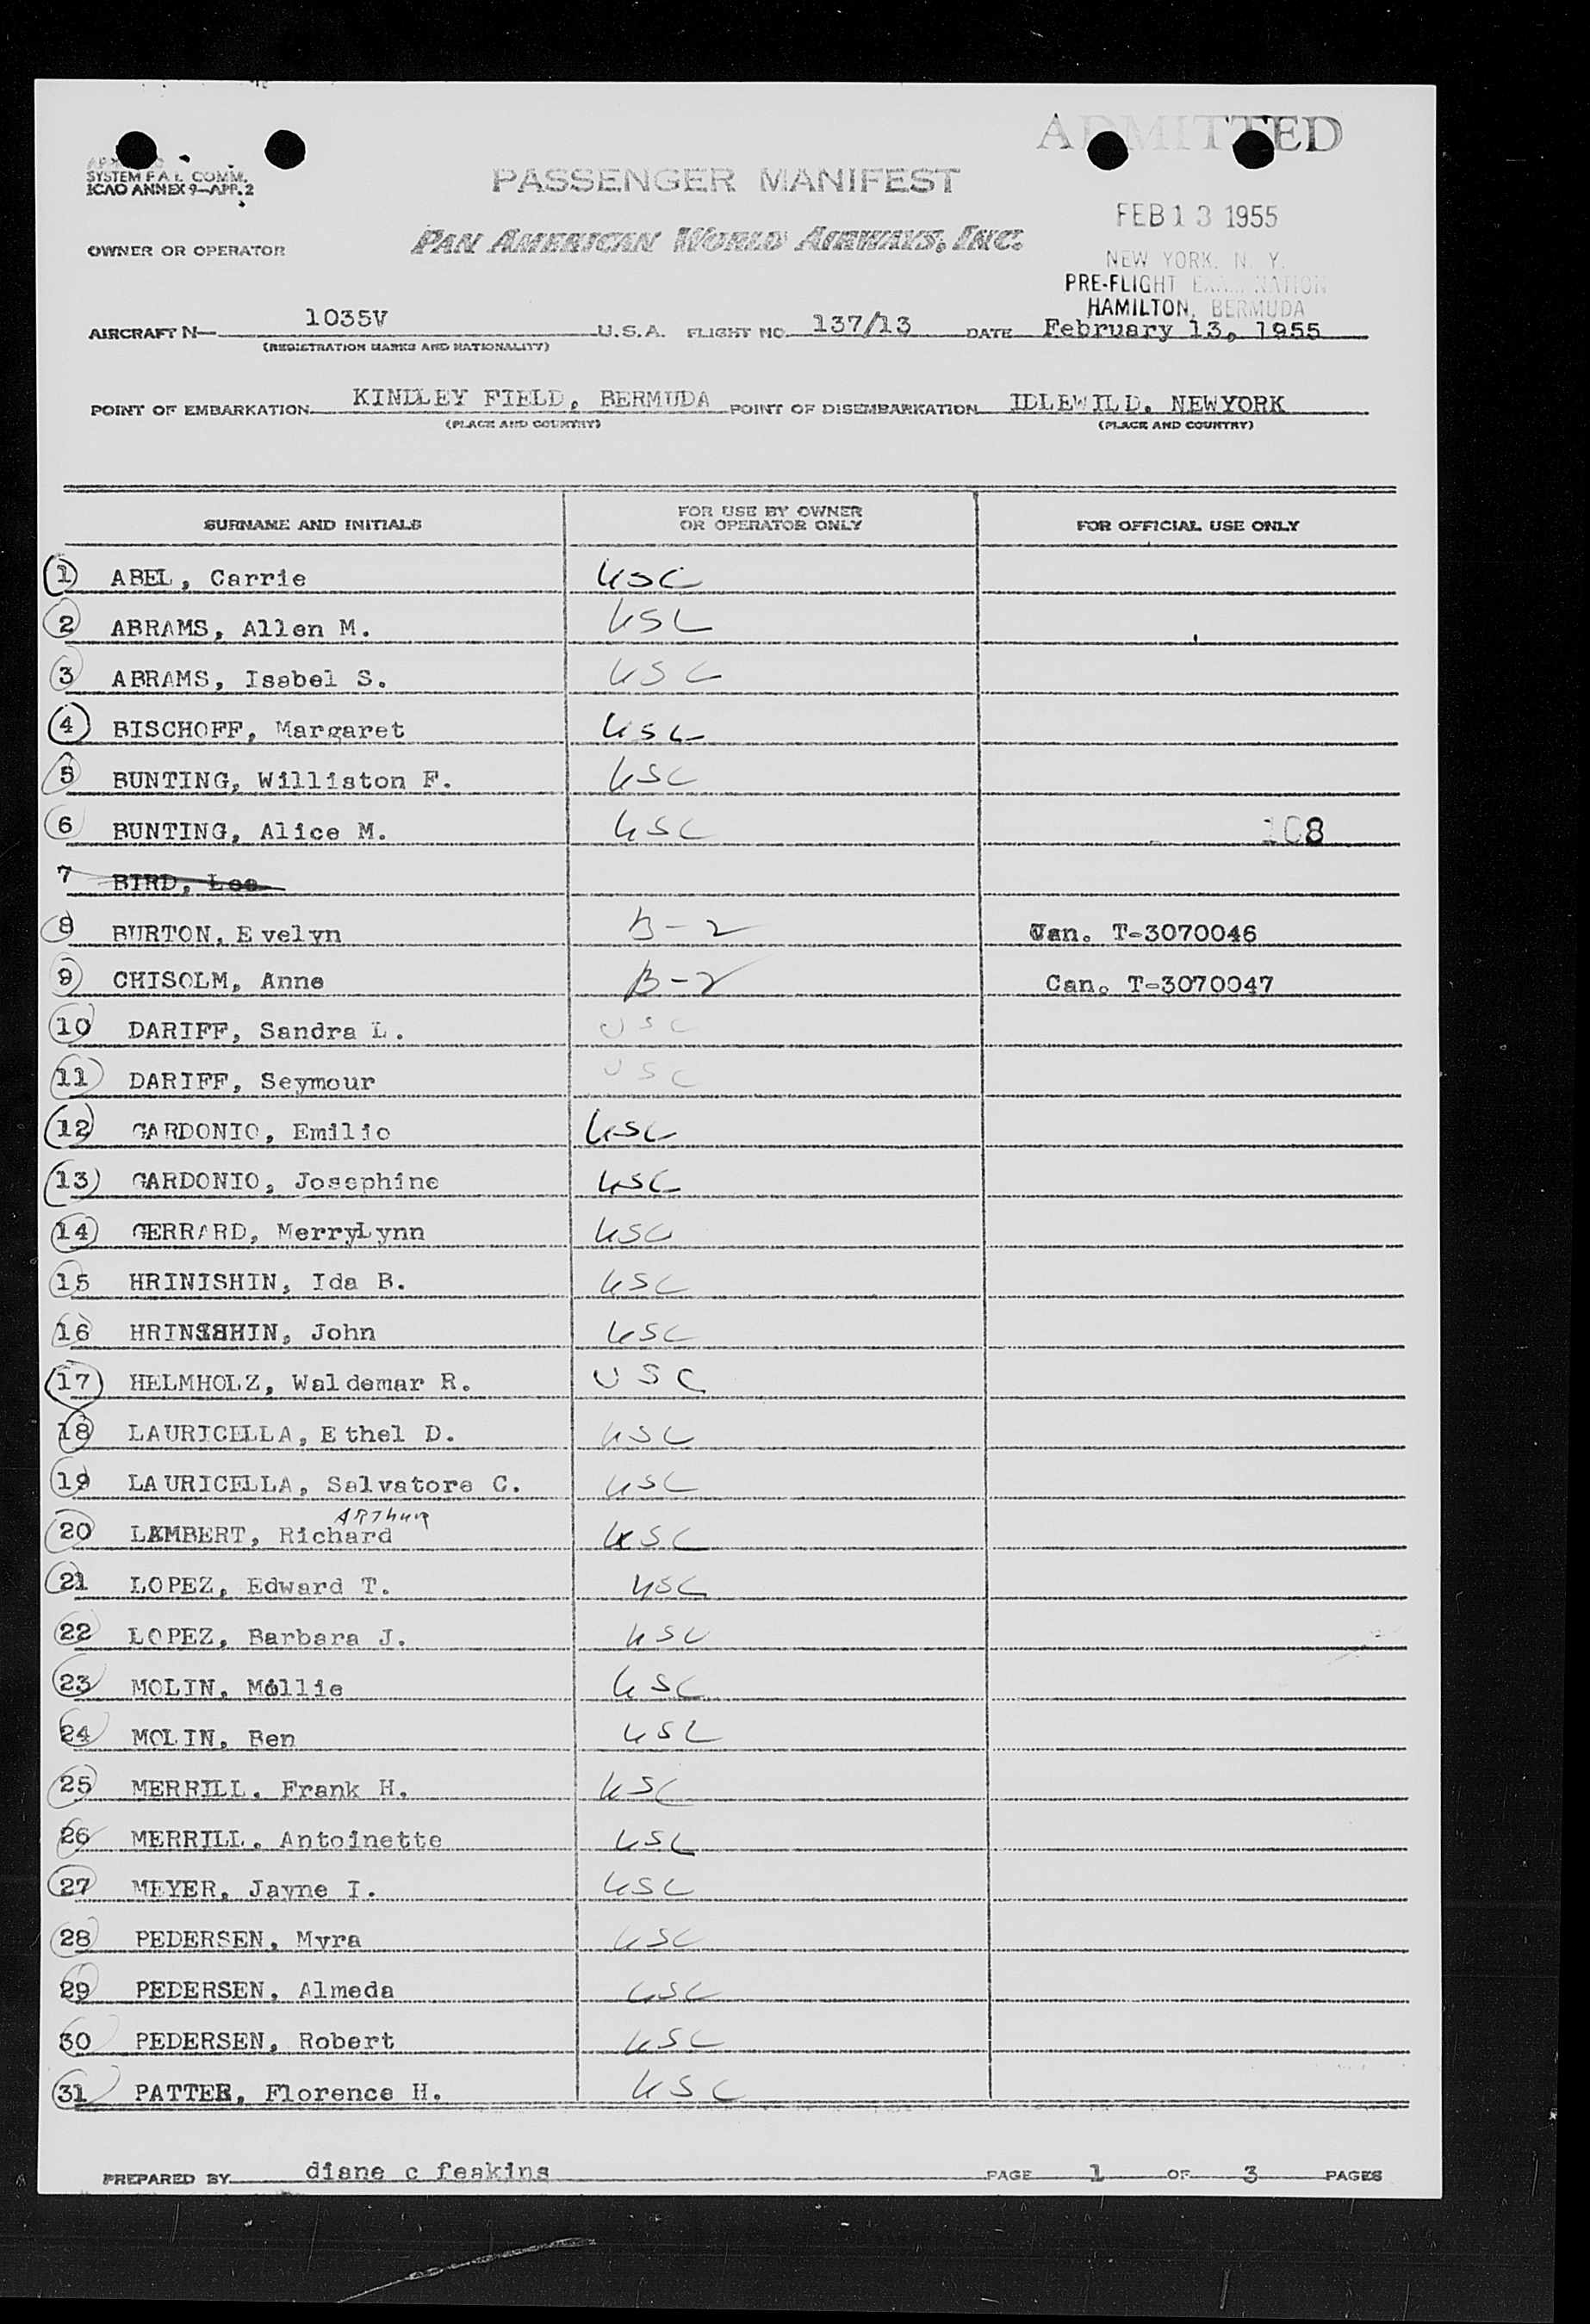 ADMITTED
SYSTEM F.A.L. COMM.
ICAO ANNEX 9—APP. 2
PASSENGER MANIFEST
FEB 13 1955
OWNER OR OPERATOR PAN AMERICAN WORLD AIRWAYS, INC.
NEW YORK, N. Y.
PRE-FLIGHT EXAMINATION
HAMILTON, BERMUDA
AIRCRAFT N— 1035V U.S.A. FLIGHT NO. 137/13 DATE February 13, 1955
(REGISTRATION MARKS AND NATIONALITY)
POINT OF EMBARKATION KINDLEY FIELD, BERMUDA POINT OF DISEMBARKATION IDLEWILD. NEWYORK
(PLACE AND COUNTRY) (PLACE AND COUNTRY)
SURNAME AND INITIALS FOR USE BY OWNER OR OPERATOR ONLY FOR OFFICIAL USE ONLY
1 ABEL, Carrie USC
2 ABRAMS, Allen M. USC
3 ABRAMS, Isabel S. USC
4 BISCHOFF, Margaret USC
5 BUNTING, Williston F. USC
6 BUNTING, Alice M. USC 108
7 BIRD, Lee
8 BURTON, Evelyn B-2 Can. T-3070046
9 CHISOLM, Anne B-2 Can. T-3070047
10 DARIFF, Sandra L. USC
11 DARIFF, Seymour USC
12 GARDONIO, Emilio USC
13 GARDONIO, Josephine USC
14 GERRARD, MerryLynn USC
15 HRINISHIN, Ida B. USC
16 HRINISHIN, John USC
17 HELMHOLZ, Waldemar R. USC
18 LAURICELLA, Ethel D. USC
19 LAURICELLA, Salvatore C. USC
ARThur
20 LAMBERT, Richard USC
21 LOPEZ, Edward T. USC
22 LOPEZ, Barbara J. USC
23 MOLIN, Mollie USC
24 MOLIN, Ben USC
25 MERRILL, Frank H. USC
26 MERRILL, Antoinette USC
27 MEYER, Jayne I. USC
28 PEDERSEN, Myra USC
29 PEDERSEN, Almeda USC
30 PEDERSEN, Robert USC
31 PATTER, Florence H. USC
PREPARED BY diane c feakins PAGE 1 OF 3 PAGES